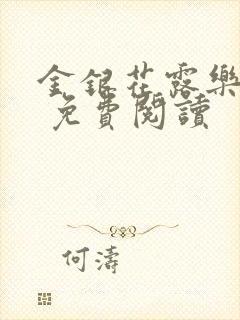 金銀花露樂
免費閱讀
何濤